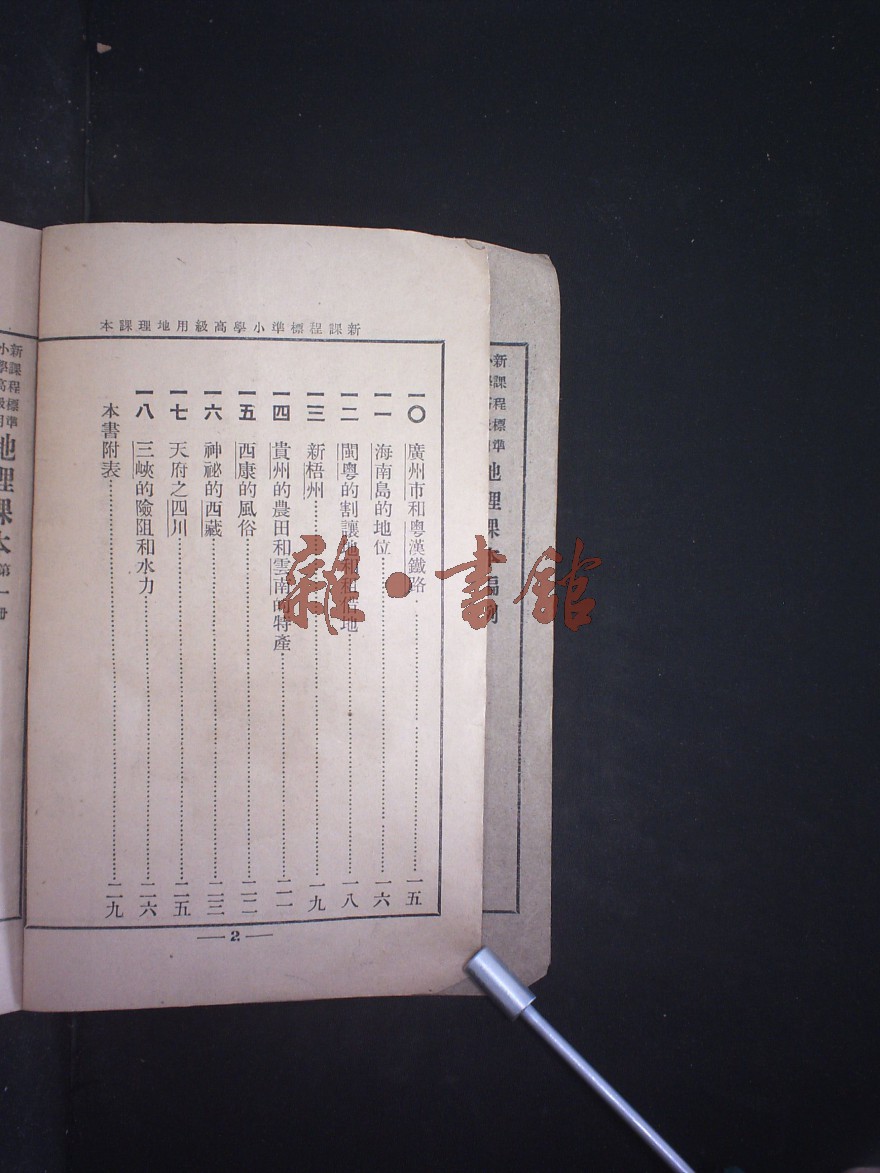 新課程標準小學高級用地理課本
一〇 廣州市和粵漢鐵路 一五
一一 海南島的地位 一六
一二 閩粵的割讓地和租借地 一八
一三 新梧州 一九
一四 貴州的農田和雲南的特產 二一
一五 西康的風俗 二二
一六 神祕的西藏 二三
一七 天府之四川 二五
一八 三峽的險阻和水力 二六
本書附表 二九
2
新課程標準
地理課本編例
新課程標準
小學高級用
地理課本 第一冊
雜·書館